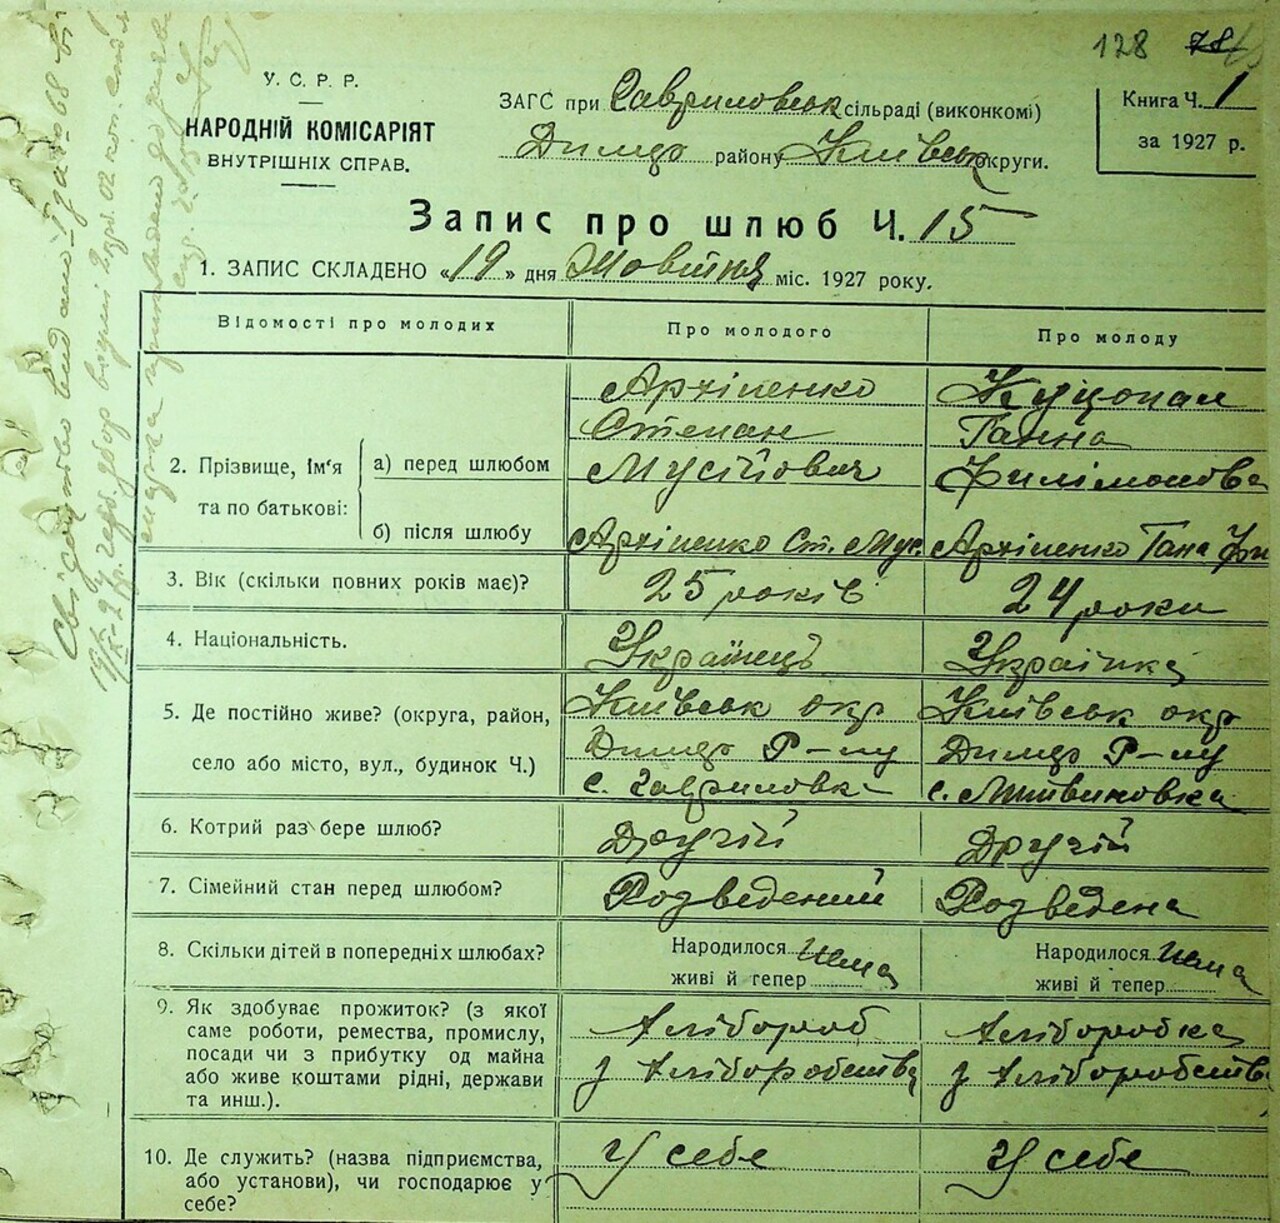 128
У. С. Р. Р.
НАРОДНІЙ КОМІСАРІЯТ
ВНУТРІШНІХ СПРАВ.
ЗАГС при Гавриловськ сільраді (виконкомі)
Димер району Київськ округи.
Книга Ч. 1
за 1927 р.
Запис про шлюб Ч. 15
1. ЗАПИС СКЛАДЕНО «19» дня Жовтня міс. 1927 року.
Відомості про молодих
Про молодого
Про молоду
2. Прізвище, Ім'я та по батькові:
а) перед шлюбом
Архіпенко
Степан
Мусійович
Куцопал
Ганна
Филімонова
б) після шлюбу
Архіпенко Ст. Мус.
Архіпенко Гана Фи
3. Вік (скільки повних років має)?
25 років
24 роки
4. Національність.
Українець
Українка
5. Де постійно живе? (округа, район,
село або місто, вул., будинок Ч.)
Київськ окр
Димер Р-ну
с. Гавриловк
Київськ окр
Димер Р-ну
с. Литвиновка
6. Котрий раз бере шлюб?
Другій
Другій
7. Сімейний стан перед шлюбом?
Розведений
Розведена
8. Скільки дітей в попередніх шлюбах?
Народилося нема
живі й тепер
Народилося нема
живі й тепер
9. Як здобуває прожиток? (з якої
саме роботи, ремества, промислу,
посади чи з прибутку од майна
або живе коштами рідні, держави
та инш.).
Хлібороб
з хліборобства
Хліборобка
з хліборобств
10. Де служить? (назва підприємства,
або установи), чи господарює у
себе?
У себе
У себе